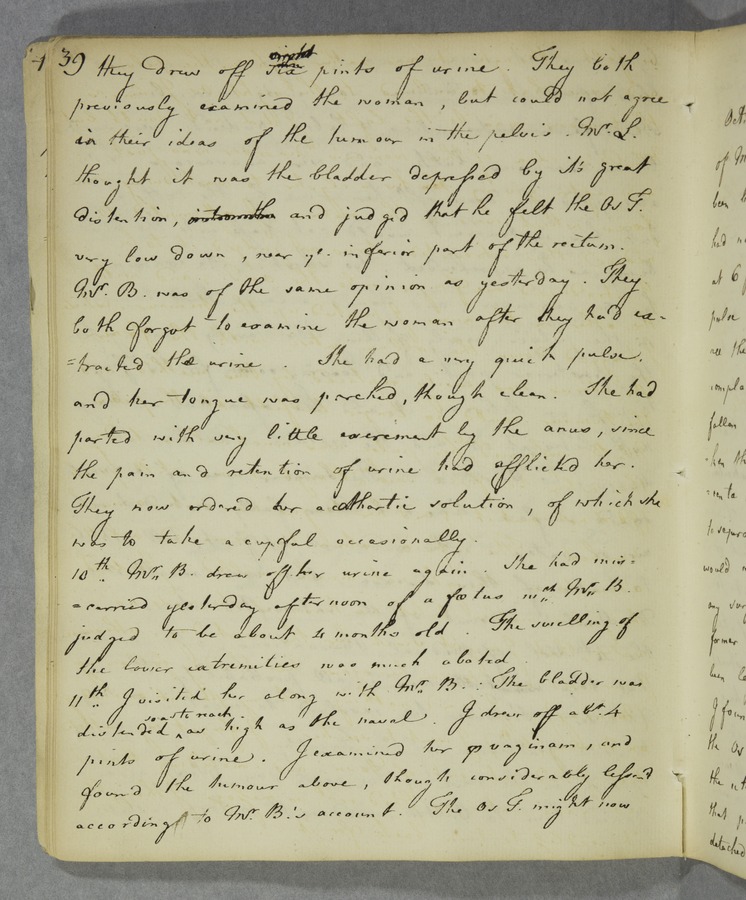 39 they drew off six pints of urine. They both
previously examined the woman, but could not agree
in their ideas of the tumour in the pelvis. Mr. L.
thought it was the bladder depressed by it's great
distention, and judged that he felt the Os T.
very low down, near ye. inferior part of the rectum.
Mr. B. was of the same opinion as yesterday. They
both forgot to examine the woman after they had ex=
=tracted the urine. She had a very quick pulse.
and her tongue was parched, though clean. She had
parted with very little excrement by the anus, since
the pain and retention of urine had afflicted her.
They now ordered her a cathartic solution, of which she
was to take a cupful occasionally.
10th. Mr. B. drew off her urine again. She had mis=
=carried yesterday afternoon of a fœtus wch. Mr. B.
judged to be about 4 months old. The swelling of
the lower extremities was much abated.
11th I visited her along with Mr. B.: The bladder was
so as to reach
distended as high as the naval. I drew off abt. 4
pints of urine. I examined her p vaginam, and
found the tumour above, though considerably lessen'd
according to Mr. B.'s account. The Os T. might now